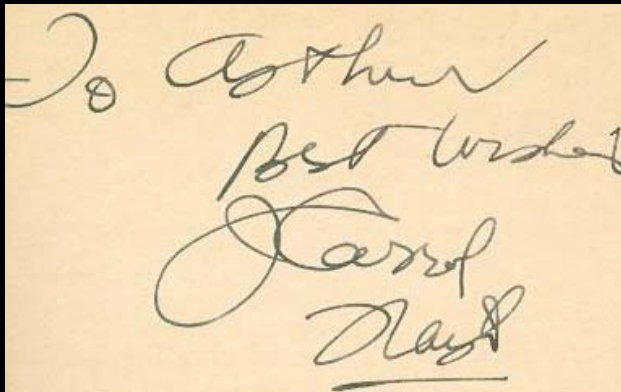 To Arthur
Best Wishes
J Carrol
Naish